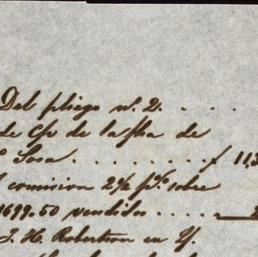 Del pliego nº. 2. . . . .
de C/v de la fha de
Sosa. . . . . . . . . . $ 11,3
comision 2½ pº. sobre
1699.50 vendidos . . . .
J. H. Robertson en